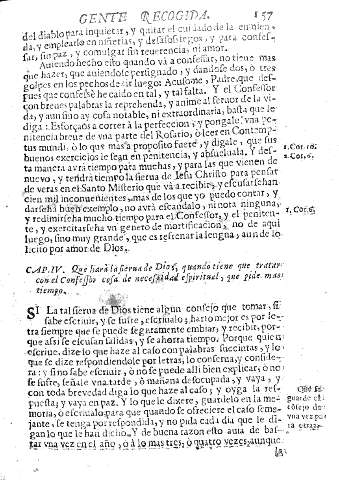 GENTE RECOGIDA. 157
del diablo para inquietar, y quitar el cuidado de la enmienda
da, y emplearlo en niñerias, y desassosiegos, y para confessar
sar, sin paz, y comulgar sin reverencia, ni amor.
Auiendo hecho esto quando và a confessar, no tiene mas
que hazer, que auiendose persignado, y dandose dos, ò tres
golpes en los pechos dezir luego: Acusome, Padre, que despues
pues que confessè he caido en tal, y tal falta. Y el Confessor
con breues palabras la reprehenda, y anime al seruor de la vida
da, y aun sino ay cosa notable, ni extraordinaria, basta que le
diga: Esforçaos a correr à la perfeccion; y pongale vna penitencia
nitencia breue de vna parte del Rosario, ò leer en Contemptus
tus mundi, ò lo que mas a proposito fuere, y digale, que sus
buenos exercicios le sean en penitencia, y absueluala. Y desta
ta manera avrà tiempo para muchas, y para las que vienen de
nuevo, y tendrà tiempo la sierua de Iesu Christo para pensar
de veras en el Santo Misterio que và a recibir, y escusarsehan
cien mil inconuenientes, mas de los que yo puedo contar, y
darseha buen exemplo, no avrà escandalo, ni nota ninguna,
y redimirseha mucho tiempo para el Confessor, y el penitente
te, y exercitarseha vn genero de mortificacion, no de aqui
luego, sino muy grande, que es refrenar la lengua, aun de lo
licito por amor de Dios.
1. Cor. 10.
2. Cor. 6.
1. Cor. 6.
CAP. IV. Que harà la sierua de Dios, quando tiene que tratar
con el Confessor cosa de necesidad espiritual, que pide mas
tiempo.
SI La tal sierua de Dios tiene algun consejo que tomar, si
sabe escriuir, y se sufre, escriualo; harto mejor es por letra
tra siempre que se puede seguramente embiar, y recibir, porque
que assi se escusan salidas, y se ahorra tiempo. Porque quien
escriue, dize lo que haze al caso con palabras succintas, y lo
que se dize respondiendole por letras, lo conserua, y considera
ra: y si no sabe escriuir, ò no se puede alli bien explicar, ò no
se sufre, señale vna tarde, ò mañana desocupada, y vaya, y
con toda brevedad diga lo que haze al caso, y oyga la respuesta
puesta, y vaya en paz. Y lo que le dixere, guardelo en la memoria
moria, ò escriualo para que quando se ofreciere el caso semejante
jante, se tenga por respondida, y no pida cada dia que le digan
gan lo que le han dicho. Y de buena razon esto auia de bastar
tar vna vez en el año, ò à lo mas tres, ò quatro vezes, aunque
guarde el
cōsejo de
vna vez pa
ra otra